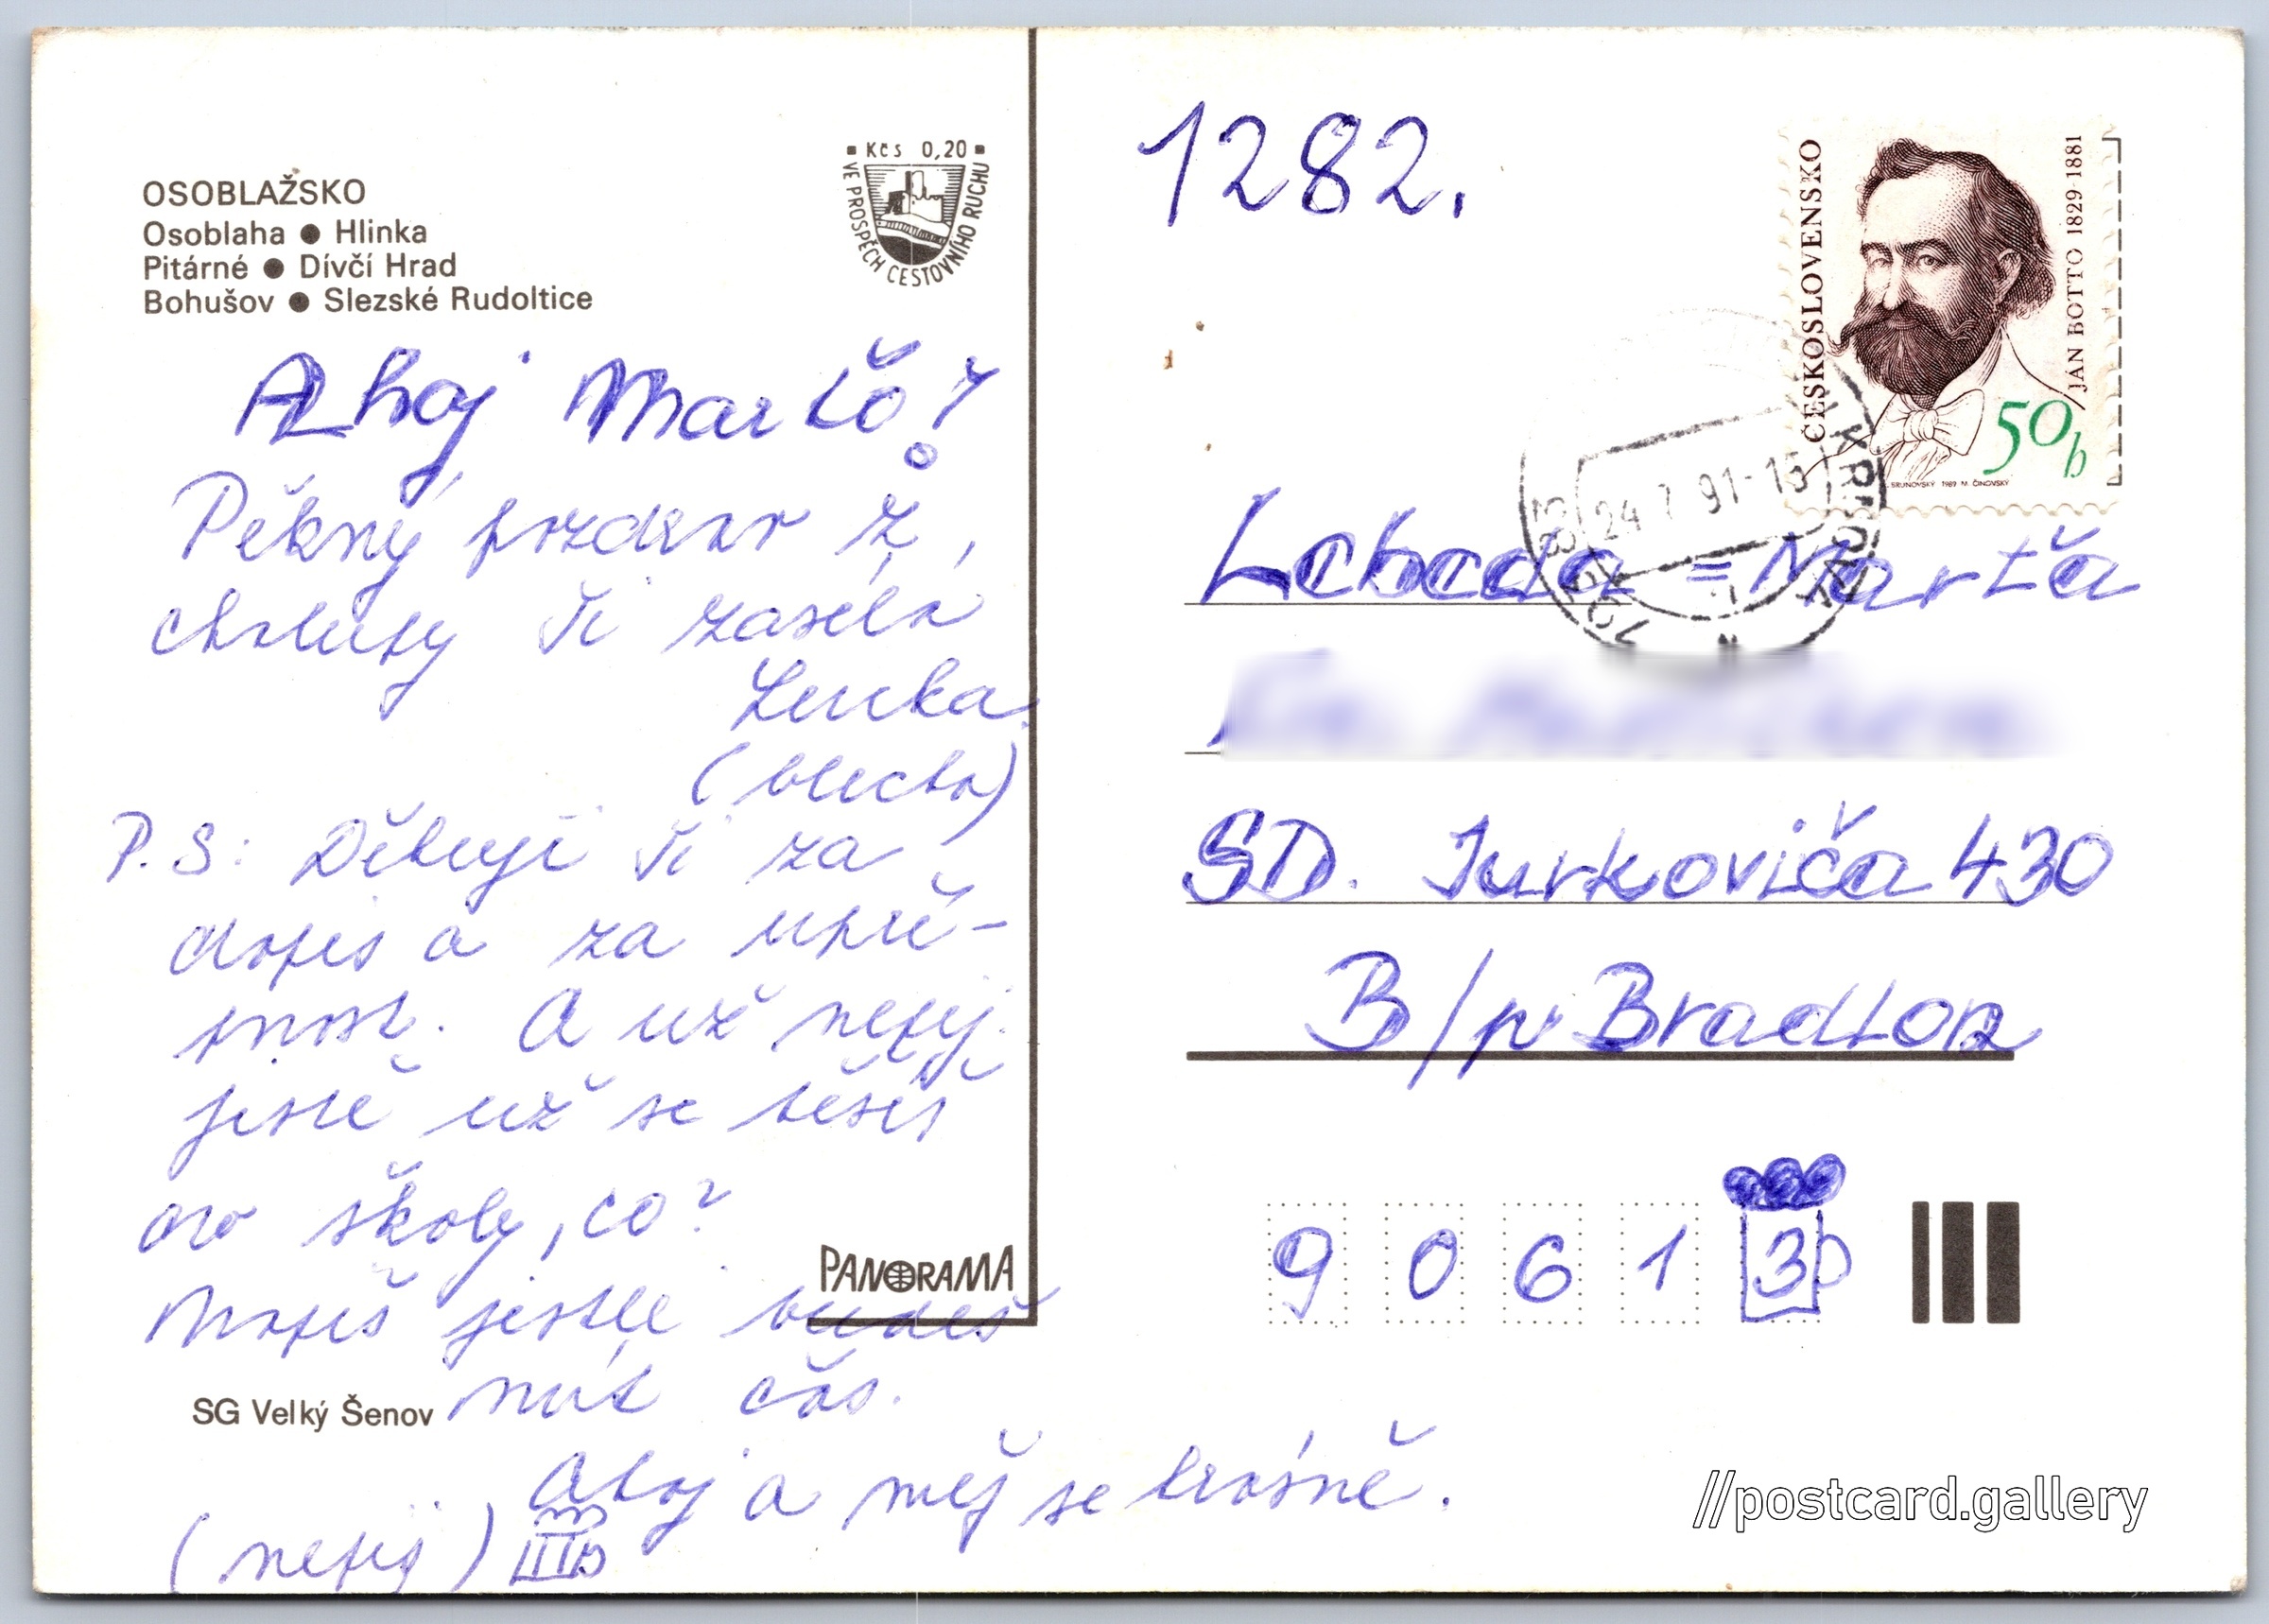 OSOBLAŽSKO
Osoblaha ● Hlinka
Pitárné ● Dívčí Hrad
Bohušov ● Slezské Rudoltice
Kčs 0,20
VE PROSPĚCH CESTOVNÍHO RUCHU
Ahoj Marťo!
Pěkný pozdrav z
chalupy Ti zasílá
Lenka
(blecha)
P.S: Děkuji Ti za
dopis a za upří-
mnost. A už nepij.
jistě už se těšíš
do školy, co?
Napiš jestli budeš
mít čas.
Ahoj a měj se krásně.
(nepij)
PANORAMA
SG Velký Šenov
1282.
ČESKOSLOVENSKO
JÁN BOTTO 1829-1881
50 h
24 7 91-15
793 99
Lebeda = Marťa
SD. Jurkoviča 430
B/p Bradlom
9 0 6 1 3
//postcard.gallery